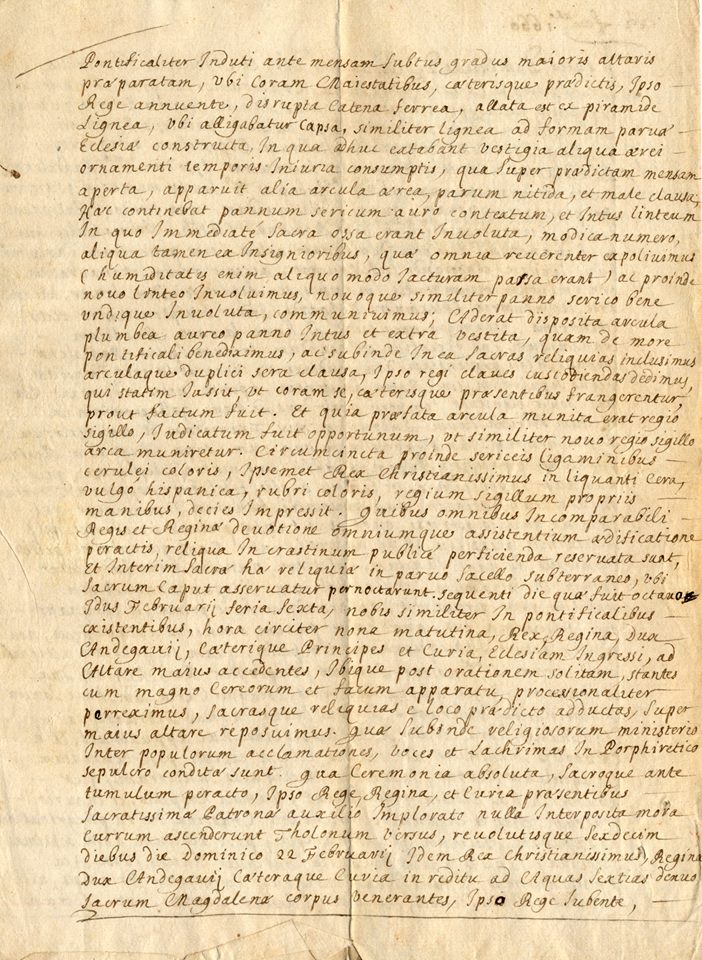 Pontificaliter Induti ante mensam subtus gradus maioris altaris
præparatam, vbi Coram Maiestatibus, cæterisque prædictis, Ipso
Rege annuente, disrupta Catena ferrea, allata est ex piramide
Lignea, vbi alligabatur Capsa, similiter lignea ad formam paruæ
Eclesiæ constructa, In qua adhuc extabant vestigia aliqua ærei
ornamenti temporis Iniuria consumptis, qua super prædictam mensam
aperta, apparuit alia arcula ærea, parum nitida, et male clausa,
Hæc continebat pannum sericum auro contextum, et Intus linteum
In quo Immediatè Sacra ossa erant Inuoluta, modica numero,
aliqua tamen ex Insignioribus, quæ omnia reuerenter expoliuimus
(humiditatis enim aliquo modo Iacturam passa erant) ac proinde
nouo linteo Inuoluimus, nouoque similiter panno serico bene
vndique Inuoluta, communiuimus; Aderat disposita arcula
plumbea aureo panno Intus et extra vestita, quam de more
pontificali benediximus, ac subinde In ea Sacras reliquias inclusimus
arculaque duplici sera clausa, Ipso regi claues custodiendas dedimus,
qui statim Iussit, vt coram se, cæterisque præsentibus frangerentur,
prout factum fuit. Et quia præfata arcula munita erat regio
sigillo, Iudicatum fuit opportunum, vt similiter nouo regio sigillo
arca muniretur. Circumcincta proinde sericeis ligaminibus
cerulei coloris, Ipsemet Rex Christianissimus in liquanti Cera,
vulgò hispanica, rubri coloris, regium sigillum propriis
manibus, decies Impressit. Quibus omnibus Incomparabili
Regis et Reginæ deuotione omniumque assistentium ædificatione
peractis, reliqua In crastinum publicè perficienda reseruata sunt,
Et Interim Sacræ hæ reliquiæ in paruo Sacello subterraneo, vbi
Sacrum Caput asseruatur pernoctarunt. sequenti die quæ fuit octauo
Idus Februarij feria Sexta, nobis similiter In pontificalibus
existentibus, hora circiter nona matutina, Rex, Regina, Dux
Andegauij, Cæterique Principes et Curia, Eclesiam Ingressi, ad
Altare maius accedentes, Ibique post orationem solitam, stantes
cum magno Cereorum et facum apparatu, processionaliter
perreximus, Sacrasque reliquias e loco prædicto adductas, super
maius altare reposuimus. quæ subinde religiosorum ministerio
Inter populorum acclamationes, voces et Lachrimas In Porphiretico
sepulcro conditæ sunt. qua Ceremonia absoluta, Sacroque ante
tumulum peracto, Ipso Rege, Regina, et Curia præsentibus
Sacratissimæ Patronæ auxilio Implorato nulla Interposita mora
Currum ascenderunt Tholonum versus, reuolutisque Sexdecim
diebus die Dominico 22 Februarij Idem Rex Christianissimus, Regina
Dux Andegauij Cæteraque Curia in reditu ad Aquas Sextias denuo
Sacrum Magdalenæ corpus venerantes, Ipso Rege Iubente,